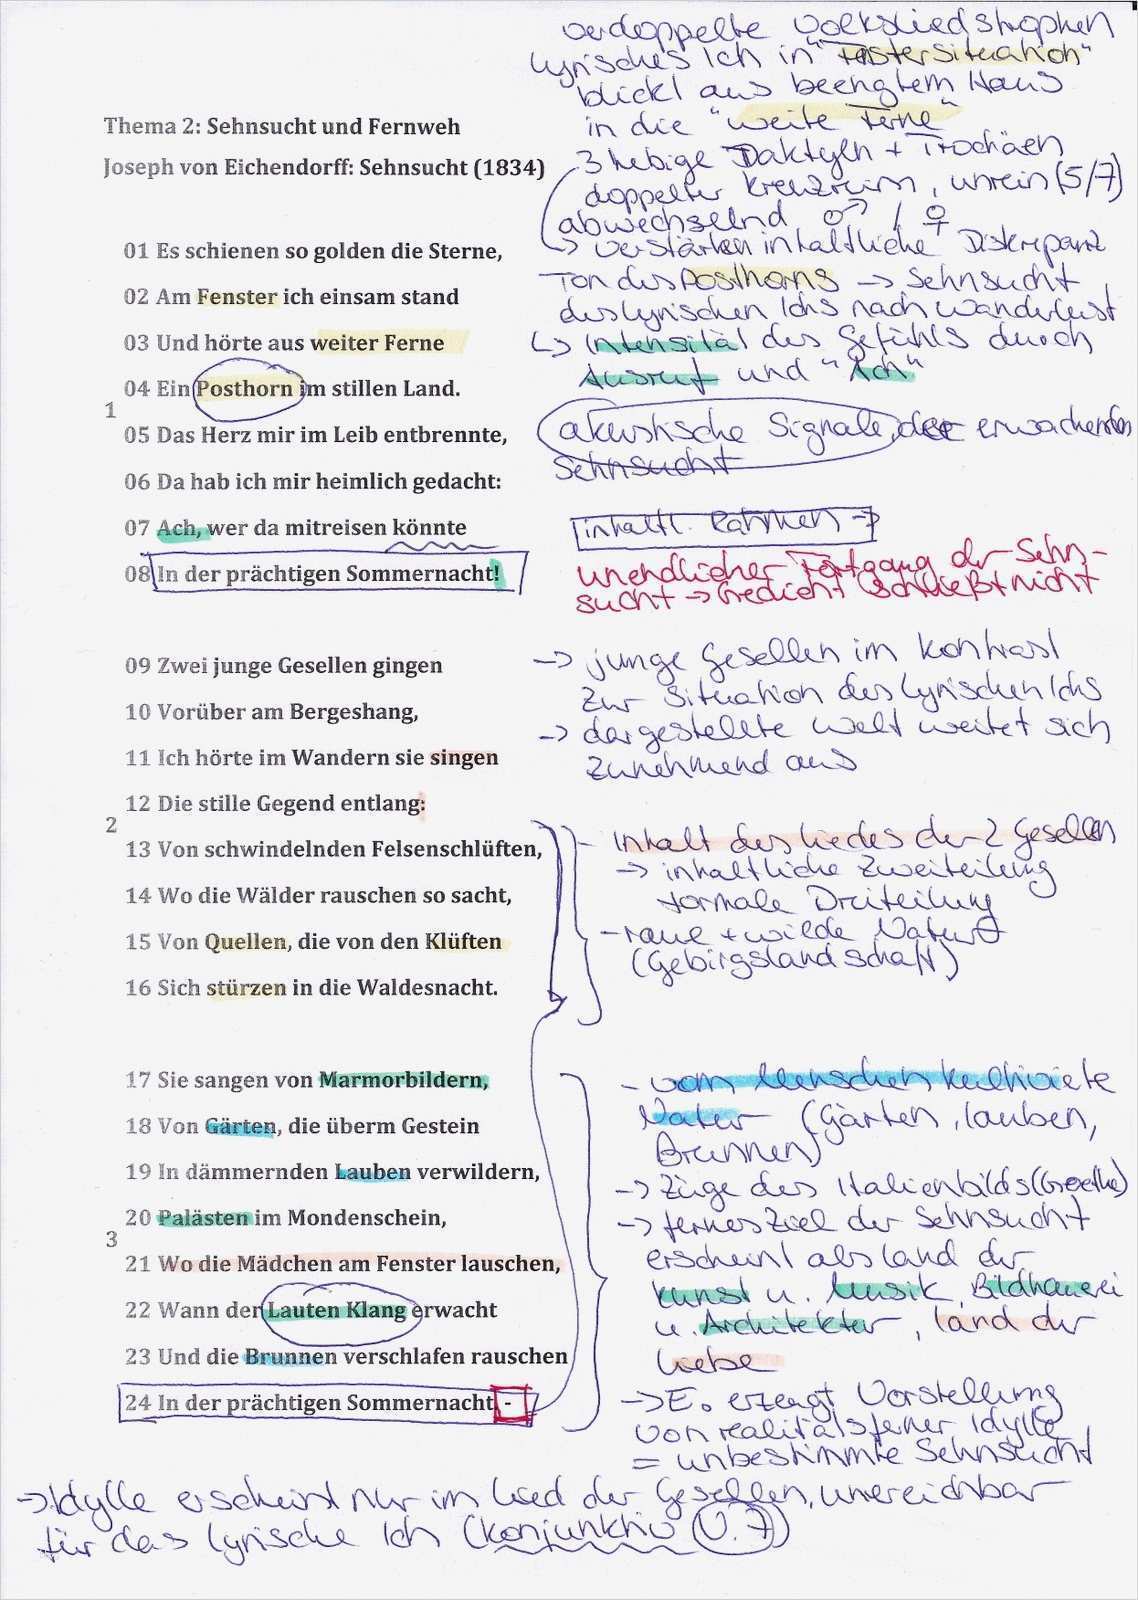 verdoppelte Volksliedstrophen
lyrisches Ich in "Fenstersituation"
blickt aus beengtem Haus
in die "weite Ferne"
Thema 2: Sehnsucht und Fernweh
3 hebige Daktylen + Trochäen
Joseph von Eichendorff: Sehnsucht (1834)
doppelter Kreuzreim, unrein (5/7)
abwechselnd ♂ / ♀
→ verstärken inhaltliche Diskrepanz
01 Es schienen so golden die Sterne,
Ton des Posthorns → Sehnsucht
02 Am Fenster ich einsam stand
des lyrischen Ichs nach Wanderlust
03 Und hörte aus weiter Ferne
↳ Intensität des Gefühls durch
Ausruf und "Ach"
04 Ein Posthorn im stillen Land.
1
05 Das Herz mir im Leib entbrennte,
akustische Signale, der erwachenden
Sehnsucht
06 Da hab ich mir heimlich gedacht:
07 Ach, wer da mitreisen könnte
inhaltl. Rahmen →
08 In der prächtigen Sommernacht!
unendlicher Fortgang der Sehn-
sucht → Gedicht schließt nicht
09 Zwei junge Gesellen gingen
→ junge Gesellen im Kontrast
zur Situation des lyrischen Ichs
10 Vorüber am Bergeshang,
→ dargestellte Welt weitet sich
zunehmend aus
11 Ich hörte im Wandern sie singen
12 Die stille Gegend entlang:
2
- Inhalt des Liedes der 2 Gesellen
13 Von schwindelnden Felsenschlüften,
→ inhaltliche Zweiteilung
formale Dreiteilung
14 Wo die Wälder rauschen so sacht,
15 Von Quellen, die von den Klüften
- raue + wilde Natur
(Gebirgslandschaft)
16 Sich stürzen in die Waldesnacht.
17 Sie sangen von Marmorbildern,
- vom Menschen kultivierte
Natur (Gärten, Lauben,
Brunnen)
18 Von Gärten, die überm Gestein
19 In dämmernden Lauben verwildern,
→ Züge des Italienbilds (Goethe)
20 Palästen im Mondenschein,
→ fernes Ziel der Sehnsucht
3
erscheint als Land der
21 Wo die Mädchen am Fenster lauschen,
Kunst u. Musik, Bildhauerei
22 Wann der Lauten Klang erwacht
u. Architektur, Land der
Liebe
23 Und die Brunnen verschlafen rauschen
24 In der prächtigen Sommernacht -
→ E. erzeugt Vorstellung
von realitätsferner Idylle
= unbestimmte Sehnsucht
→ Idylle erscheint nur im Lied der Gesellen, unereichbar
für das lyrische Ich (Konjunktiv V. 7)